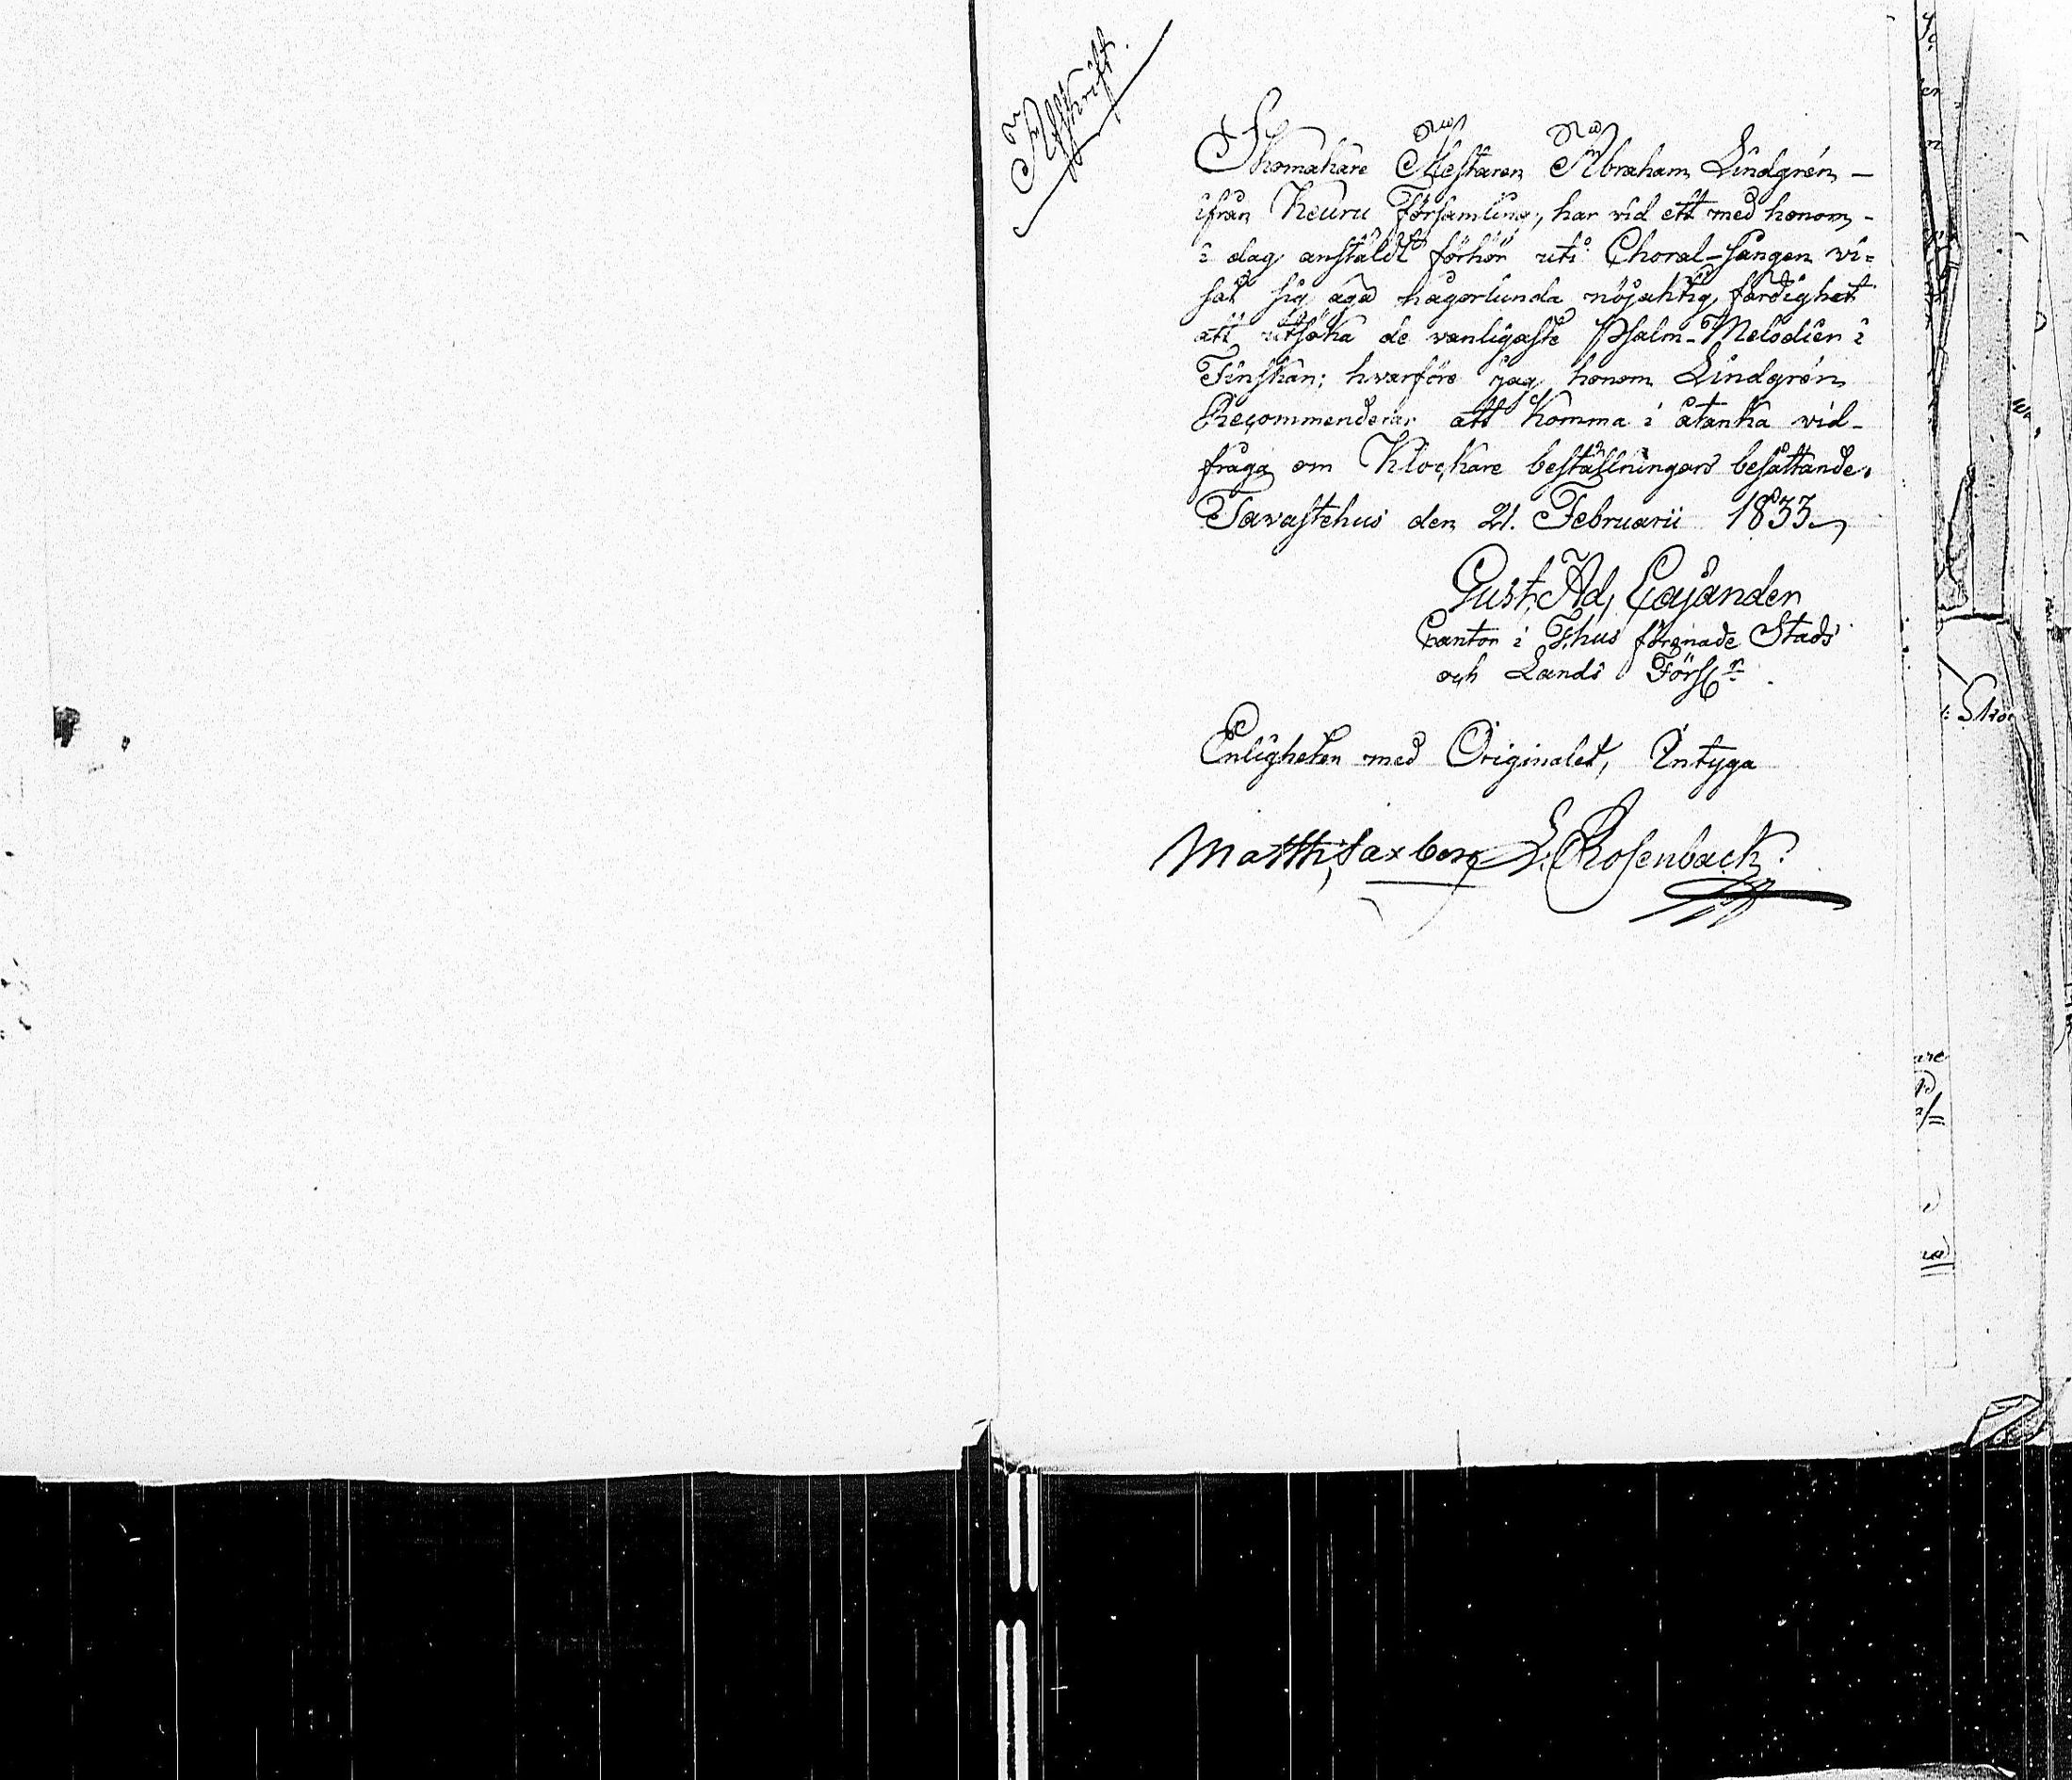 Afskrift.
Skomakare Mestaren Abraham Lindgrén –
ifrån Keuru Församling, har vid ett med honom, -
i dag anstäldt förhör uti Choral-sången vi=
sat sig äga någorlunda nöjaktig färdighet
att utföka de vanligaste Psalm-Melodier i
Finskan; hvarföre jag honom Lindgrén
Recommenderar att komma i åtanka vid-
fråga om Klockare beställningars besättande.
Tavastehus den 21. Februarii 1833
Gust. Ad. Cajander
Cantor i T:hus förenade Stads
och Lands Förs:r
Enligheten med Originalet, Intyga
Matth, Saxberg L. Rosenback.